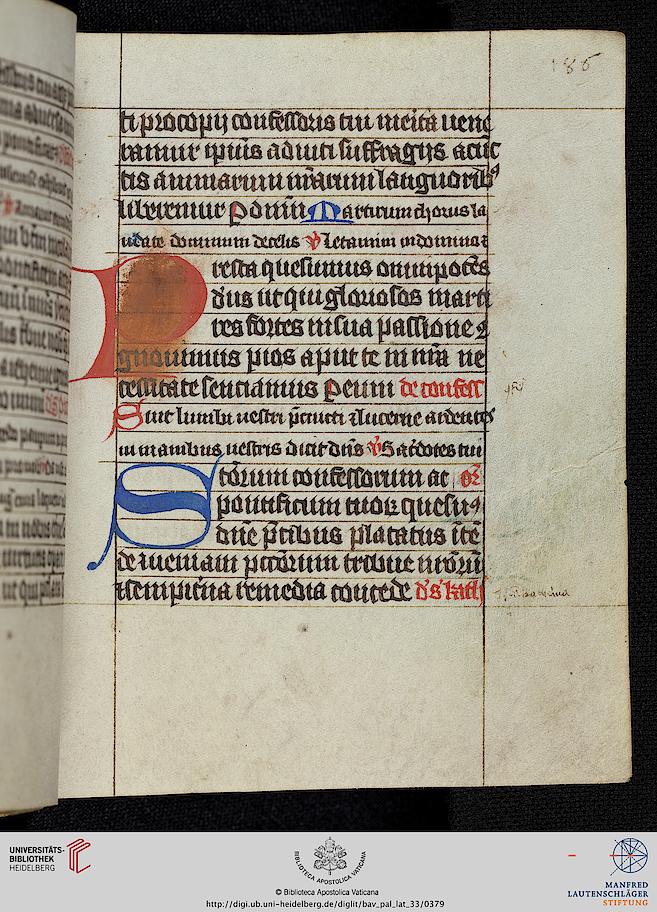 186
ti procopij confessoris tui meita uene
ramur ipius adiuti suffragijs acuc
tis animarum nrarum languorib9
liberemur Domin Martirum chorus la
udate dominum decelis V Letamini indomino
Presta quesumus omnipotes
d'us ut qui gloriosos marti
res fortes insua passione
gnouimus pios aput te in nra ne
cessitate senciamus Peum de confess
Sint lumbi uestri pcincti lucerne ardentes
in manibus uestris dicit dns V Sacdotes tui
Storum confessorum ac or
pontificum tuor quesu9
dne pcibus placatus
de ueniam pctorum tribue
sempitna remedia concede d's kath
UNIVERSITÄTS-
BIBLIOTHEK
HEIDELBERG
BIBLIOTECA APOSTOLICA VATICANA
© Biblioteca Apostolica Vaticana
http://digi.ub.uni-heidelberg.de/diglit/bav_pal_lat_33/0379
MANFRED
LAUTENSCHLÄGER
STIFTUNG